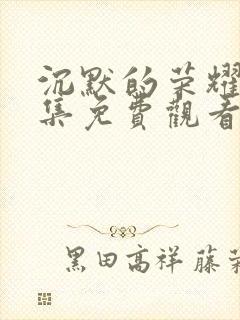 沉默的荣耀
集免費觀看
黑田高祥 藤